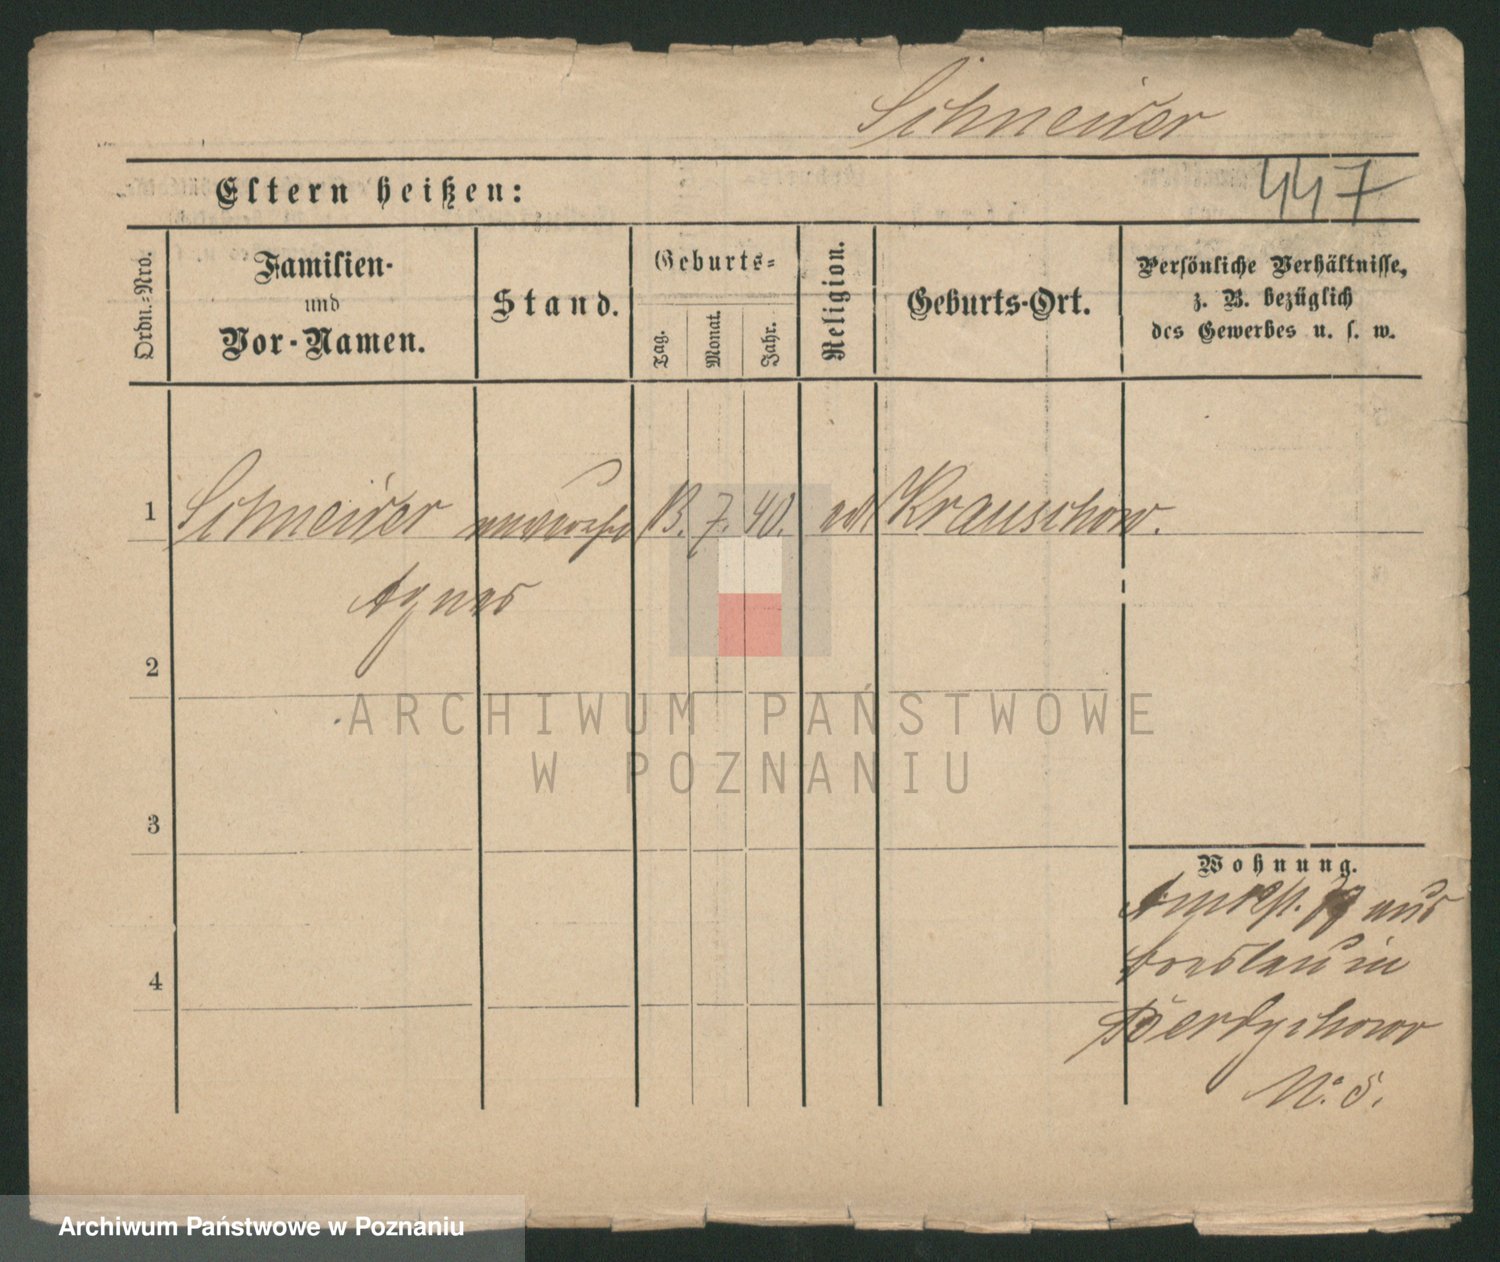 Schneider
447
Eltern heißen:
Ordn.-Nro.
Familien-
und
Vor-Namen.
Stand.
Geburts-
Tag.
Monat.
Jahr.
Religion.
Geburts-Ort.
Persönliche Verhältnisse,
z. B. bezüglich
des Gewerbes u. s. w.
1 Schneider unverehl 13. 7. 40. Krauschow.
Agnes
2
ARCHIWUM PAŃSTWOWE
W POZNANIU
3
Wohnung.
aus
Breslau in
4
Berdychowo
No. 5.
Archiwum Państwowe w Poznaniu